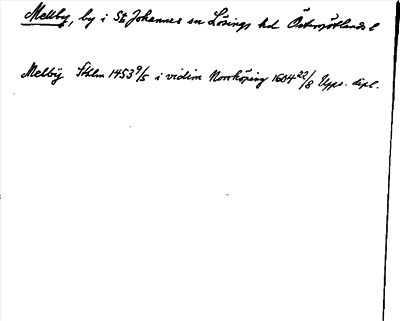 Mellby, by i St Johannes sn Lösings hd Östergötlands l
Melby Sthlm 1453 9/5 i vidim Norrköping 1604 22/8 Upps. dipl.